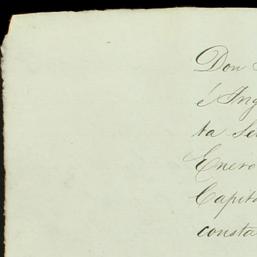 Don
é Ing
ta Se
Enero
Capit
consta